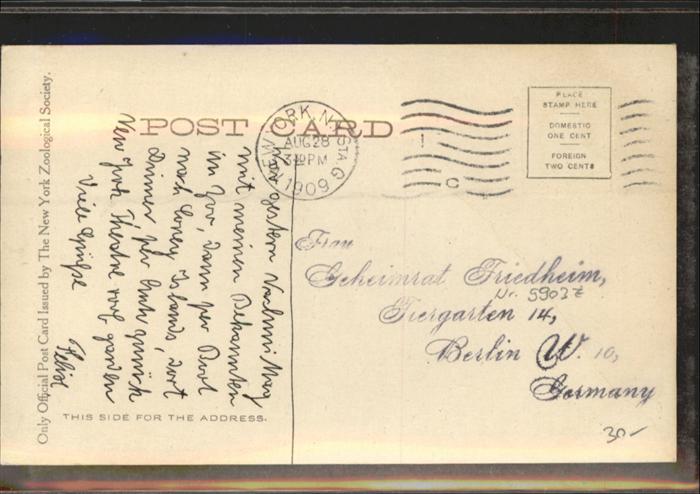 Only Official Post Card Issued by The New York Zoological Society.
POST CARD
NEW YORK, N.Y. STA G
AUG 28
3-PM
1909
C
PLACE
STAMP HERE
DOMESTIC
ONE CENT
FOREIGN
TWO CENTS
gestern Nachmittag
mit meinen Bekannten
im Zoo, dann per Boot
nach Coney Islands, dort
Dinner, per zurück
New York Theatre roof garden
Viele Grüsse
Felix
Frau
Geheimrat Friedheim,
Nr. 5903z
Tiergarten 14,
Berlin W. 10,
Germany
THIS SIDE FOR THE ADDRESS.
30-